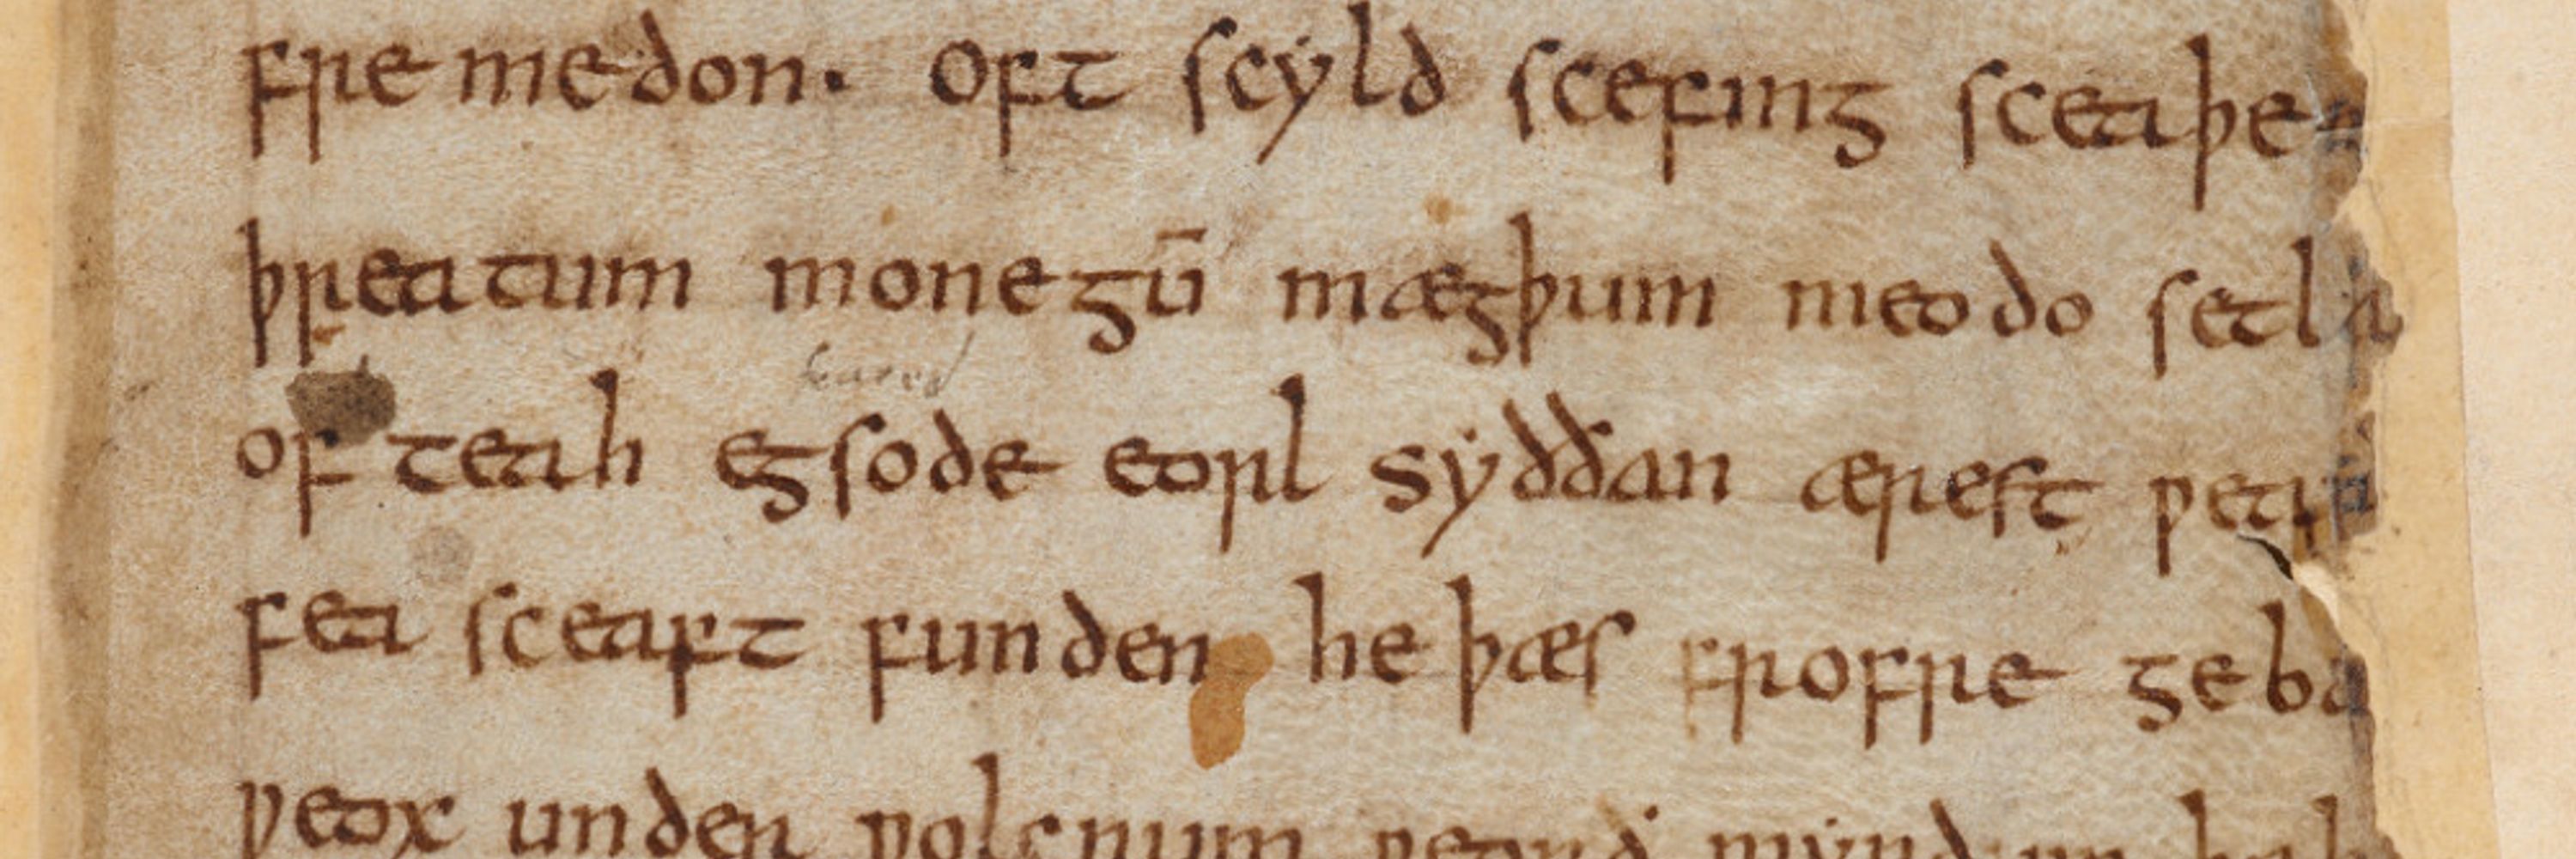 fremedon. Oft scyld scefing sceaþe
þreatum monegū mægþum meodo setla
of teah egsode eorl syððan ærest wear
fea sceaft funden he þæs frofre geba
weox under wolcnum weorð myndum þah